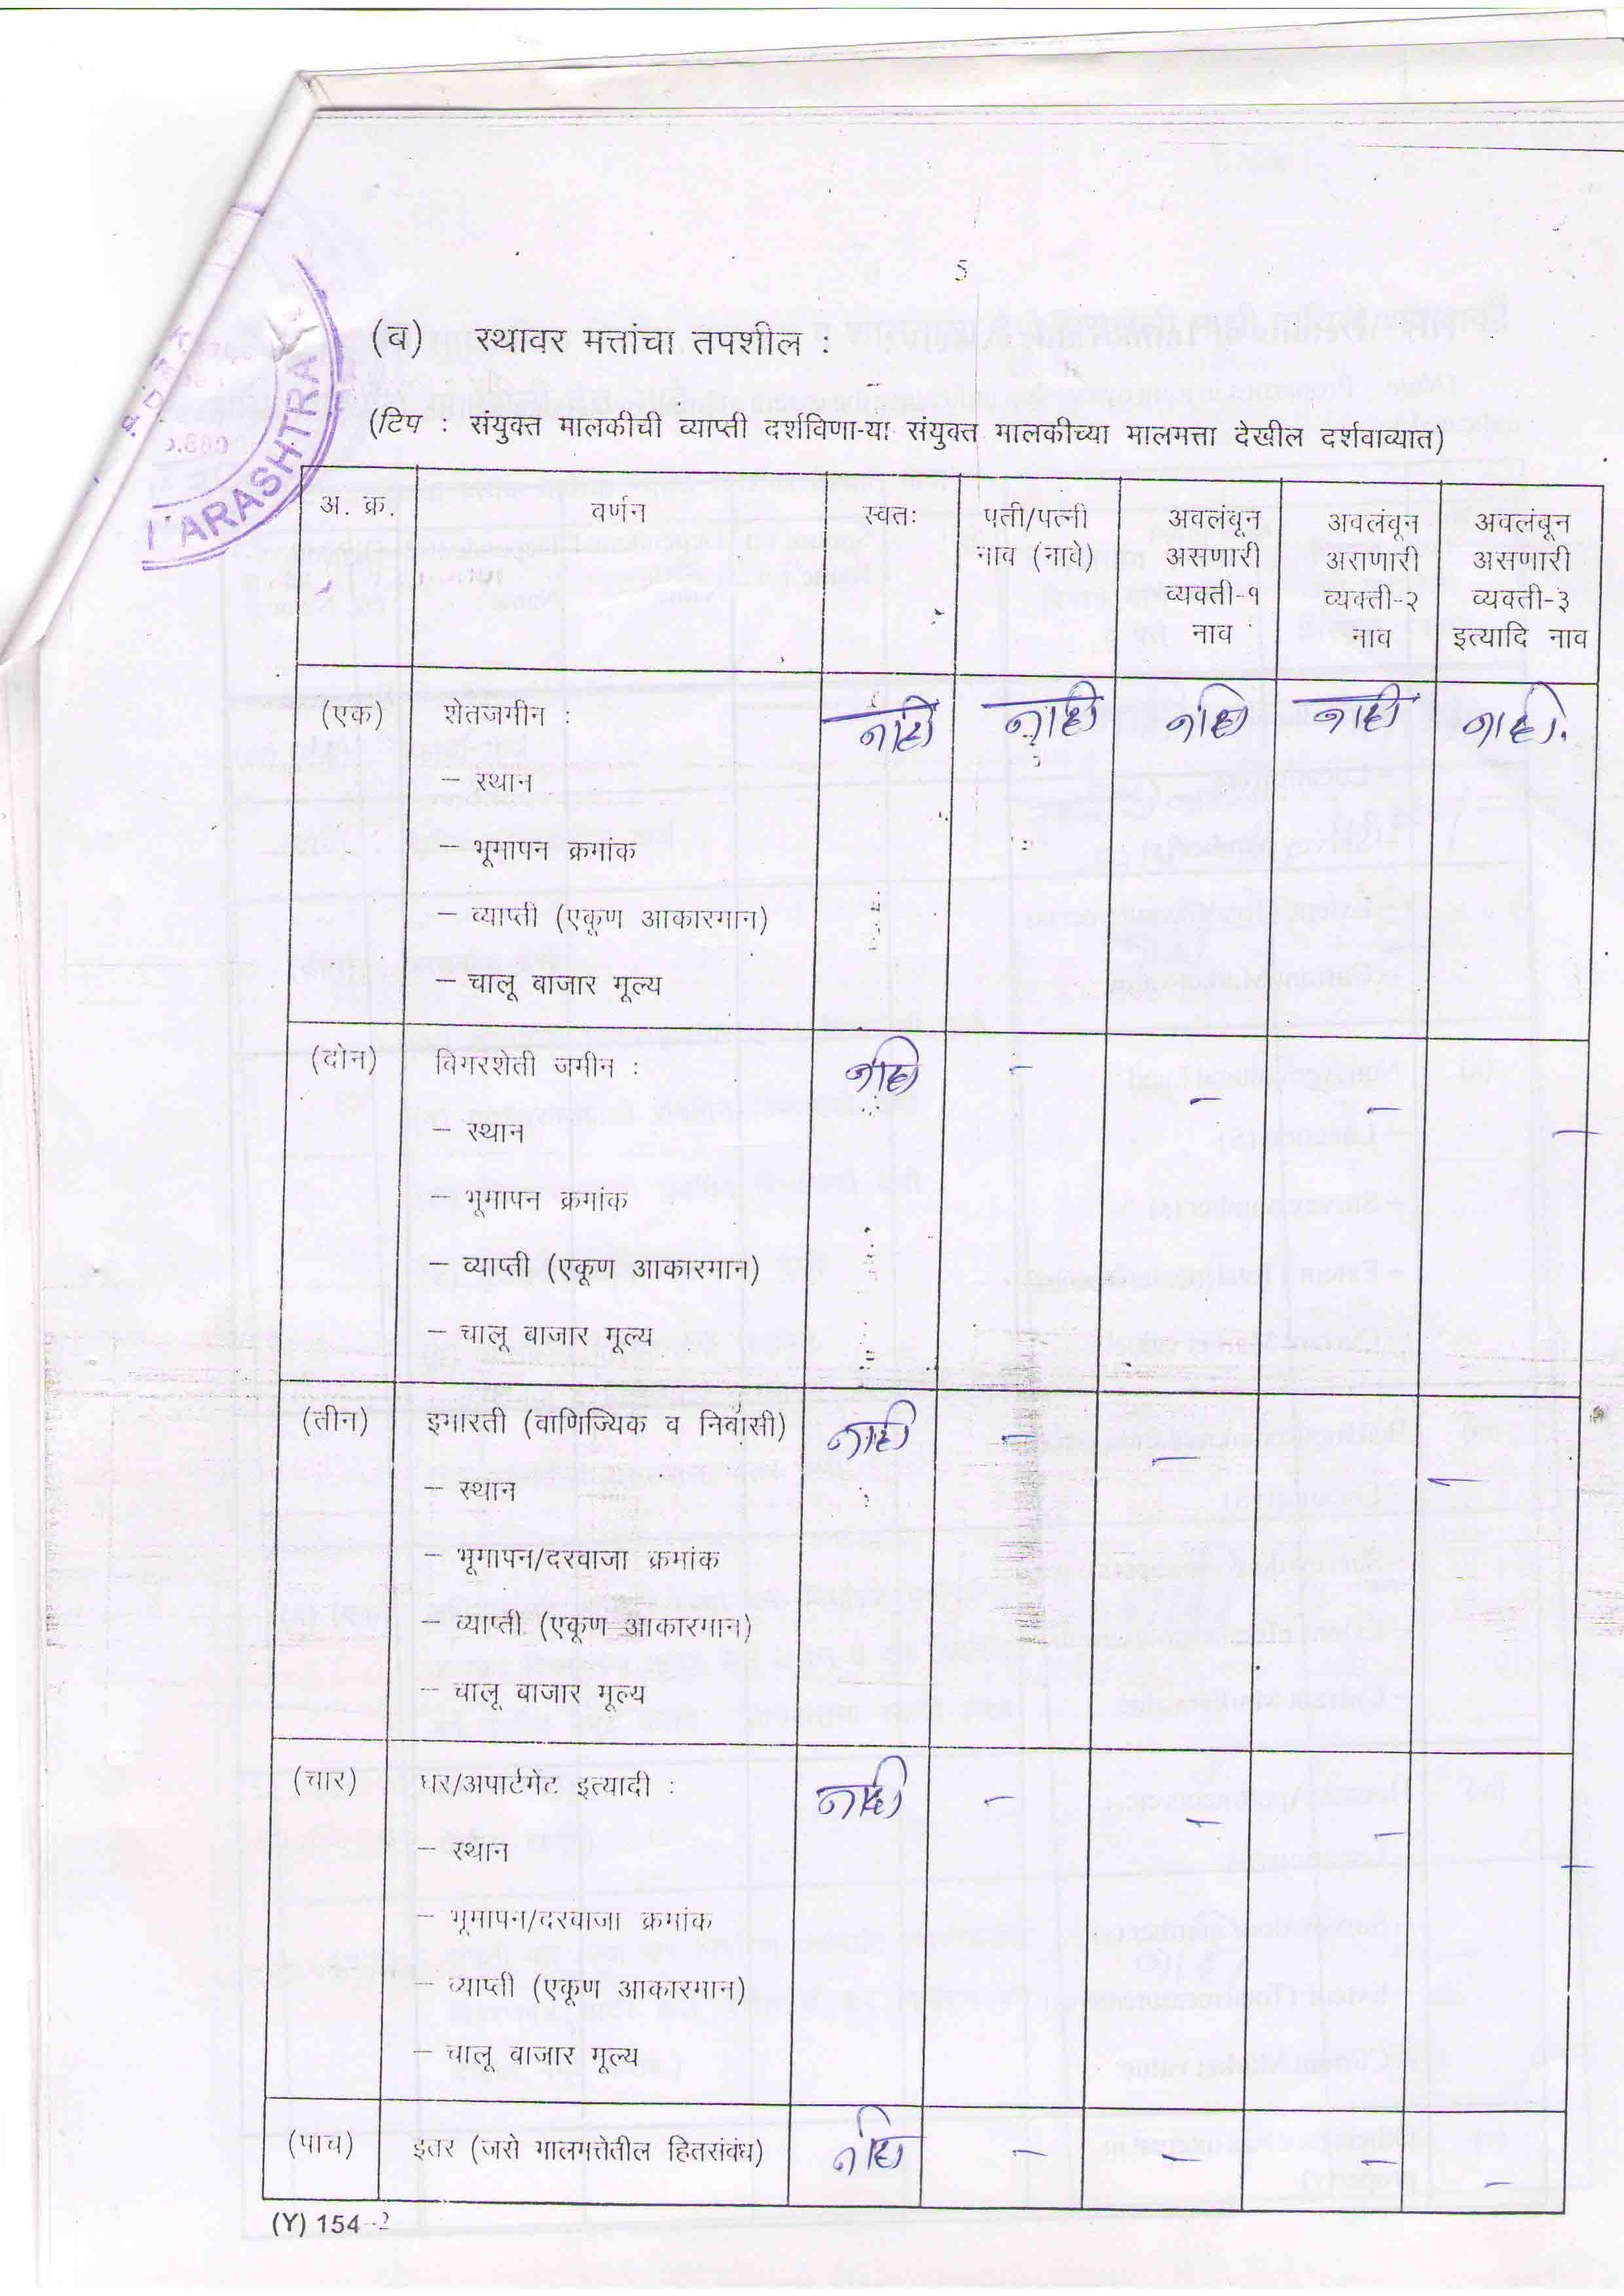 5
(ब) स्थावर मत्तांचा तपशील :
(टिप : संयुक्त मालकीची व्याप्ती दर्शविणा-या संयुक्त मालकीच्या मालमत्ता देखील दर्शवाव्यात)
ARASHTRA
अ. क्र. वर्णन स्वतः पती/पत्नी अवलंबून अवलंबून अवलंबून
नाव (नावे) असणारी असणारी असणारी
व्यक्ती-१ व्यक्ती-२ व्यक्ती-३
नाव नाव इत्यादि नाव
(एक) शेतजमीन : नाही नाही नाही नाही नाही.
– स्थान
– भूमापन क्रमांक
– व्याप्ती (एकूण आकारमान)
– चालू बाजार मूल्य
(दोन) विगरशेती जमीन : नाही – – – –
– स्थान
– भूमापन क्रमांक
– व्याप्ती (एकूण आकारमान)
– चालू बाजार मूल्य
(तीन) इमारती (वाणिज्यिक व निवासी) नाही – – –
– स्थान
– भूमापन/दरवाजा क्रमांक
– व्याप्ती (एकूण आकारमान)
– चालू बाजार मूल्य
(चार) घर/अपार्टमेंट इत्यादी : नाही – – – –
– स्थान
– भूमापन/दरवाजा क्रमांक
– व्याप्ती (एकूण आकारमान)
– चालू बाजार मूल्य
(पाच) इतर (जसे मालमत्तेतील हितसंबंध) नाही – – – –
(Y) 154--2